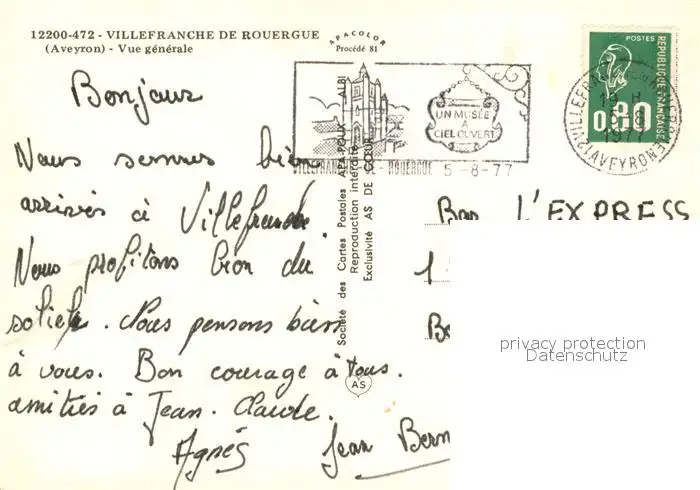 12200-472 - VILLEFRANCHE DE ROUERGUE
(Aveyron) - Vue générale
APACOLOR
Procédé 81
POSTES
REPUBLIQUE FRANÇAISE
0,80
UN MUSÉE
A
CIEL OUVERT
5-8-77
19 H
5-8
1977
12 AVEYRON
Société des Cartes Postales APA-POUX - ALBI
Reproduction interdite
Exclusivité AS DE CŒUR
AS
Bonjour
Nous sommes bien
arrivés à Villefranche.
Nous profitons bien du
soleil. Nous pensons bien
à vous. Bon courage à tous.
amitiés à Jean-Claude.
Agnés Jean Bern
Bar L'EXPRESS
1
privacy protection
Datenschutz